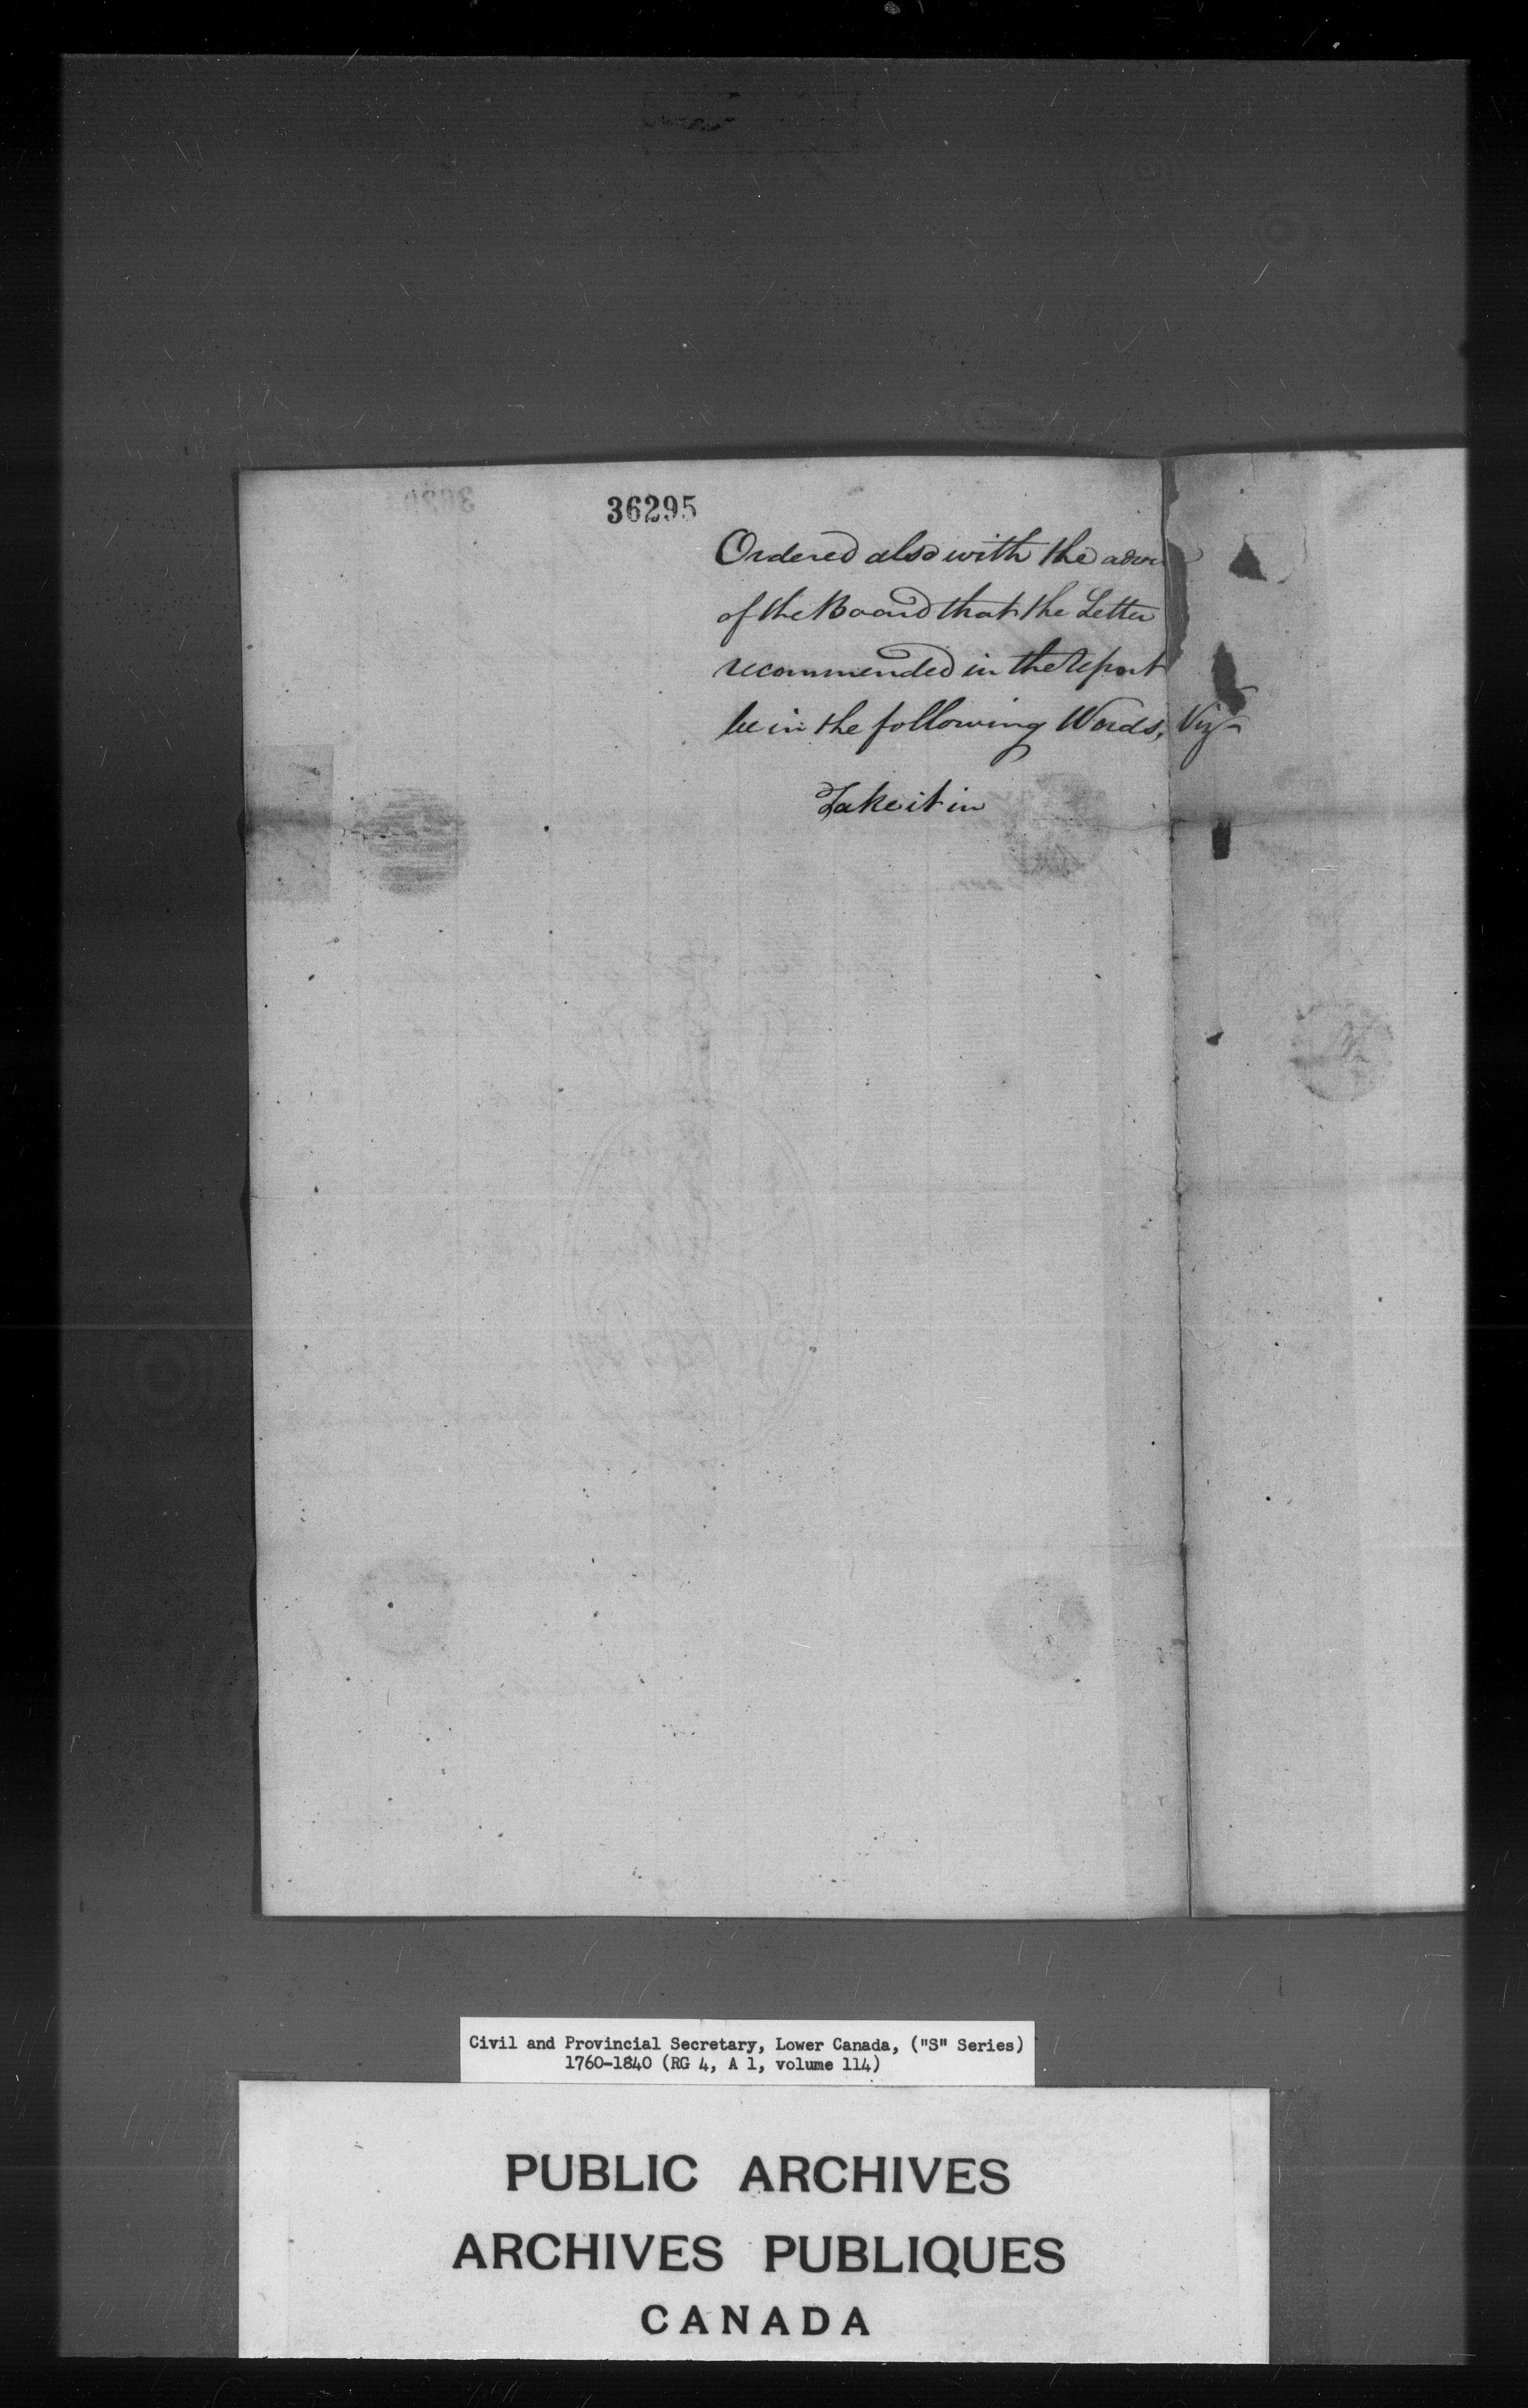 36295
Ordered also with the advi
of the Board that the Letter
recommended in the Report
be in the following Words, Viz
Take it in
Civil and Provincial Secretary, Lower Canada, ("S" Series)
1760-1840 (RG 4, A 1, volume 114)
PUBLIC ARCHIVES
ARCHIVES PUBLIQUES
CANADA